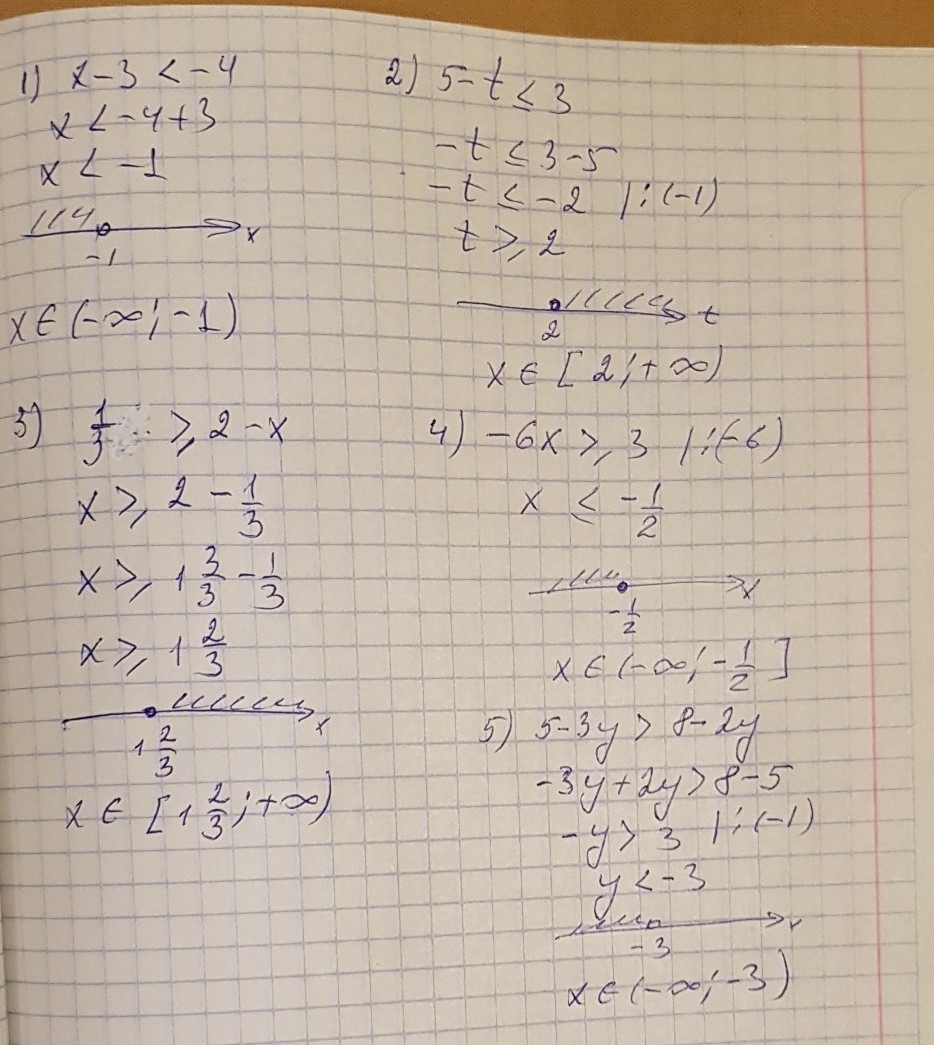 1) x-3 < -4
x < -4+3
x < -1
-1
x
x∈(-∞; -1)
2) 5-t ≤ 3
-t ≤ 3-5
-t ≤ -2 |:(-1)
t ≥ 2
2
t
x ∈ [2; +∞)
3) 1/3 ≥ 2-x
x ≥ 2 - 1/3
x ≥ 1 3/3 - 1/3
x ≥ 1 2/3
x
1 2/3
x ∈ [1 2/3; +∞)
4) -6x ≥ 3 |:(-6)
x ≤ -1/2
x
-1/2
x∈(-∞; -1/2]
5) 5-3y > 8-2y
-3y+2y > 8-5
-y > 3 |:(-1)
y < -3
-3
x∈(-∞; -3)